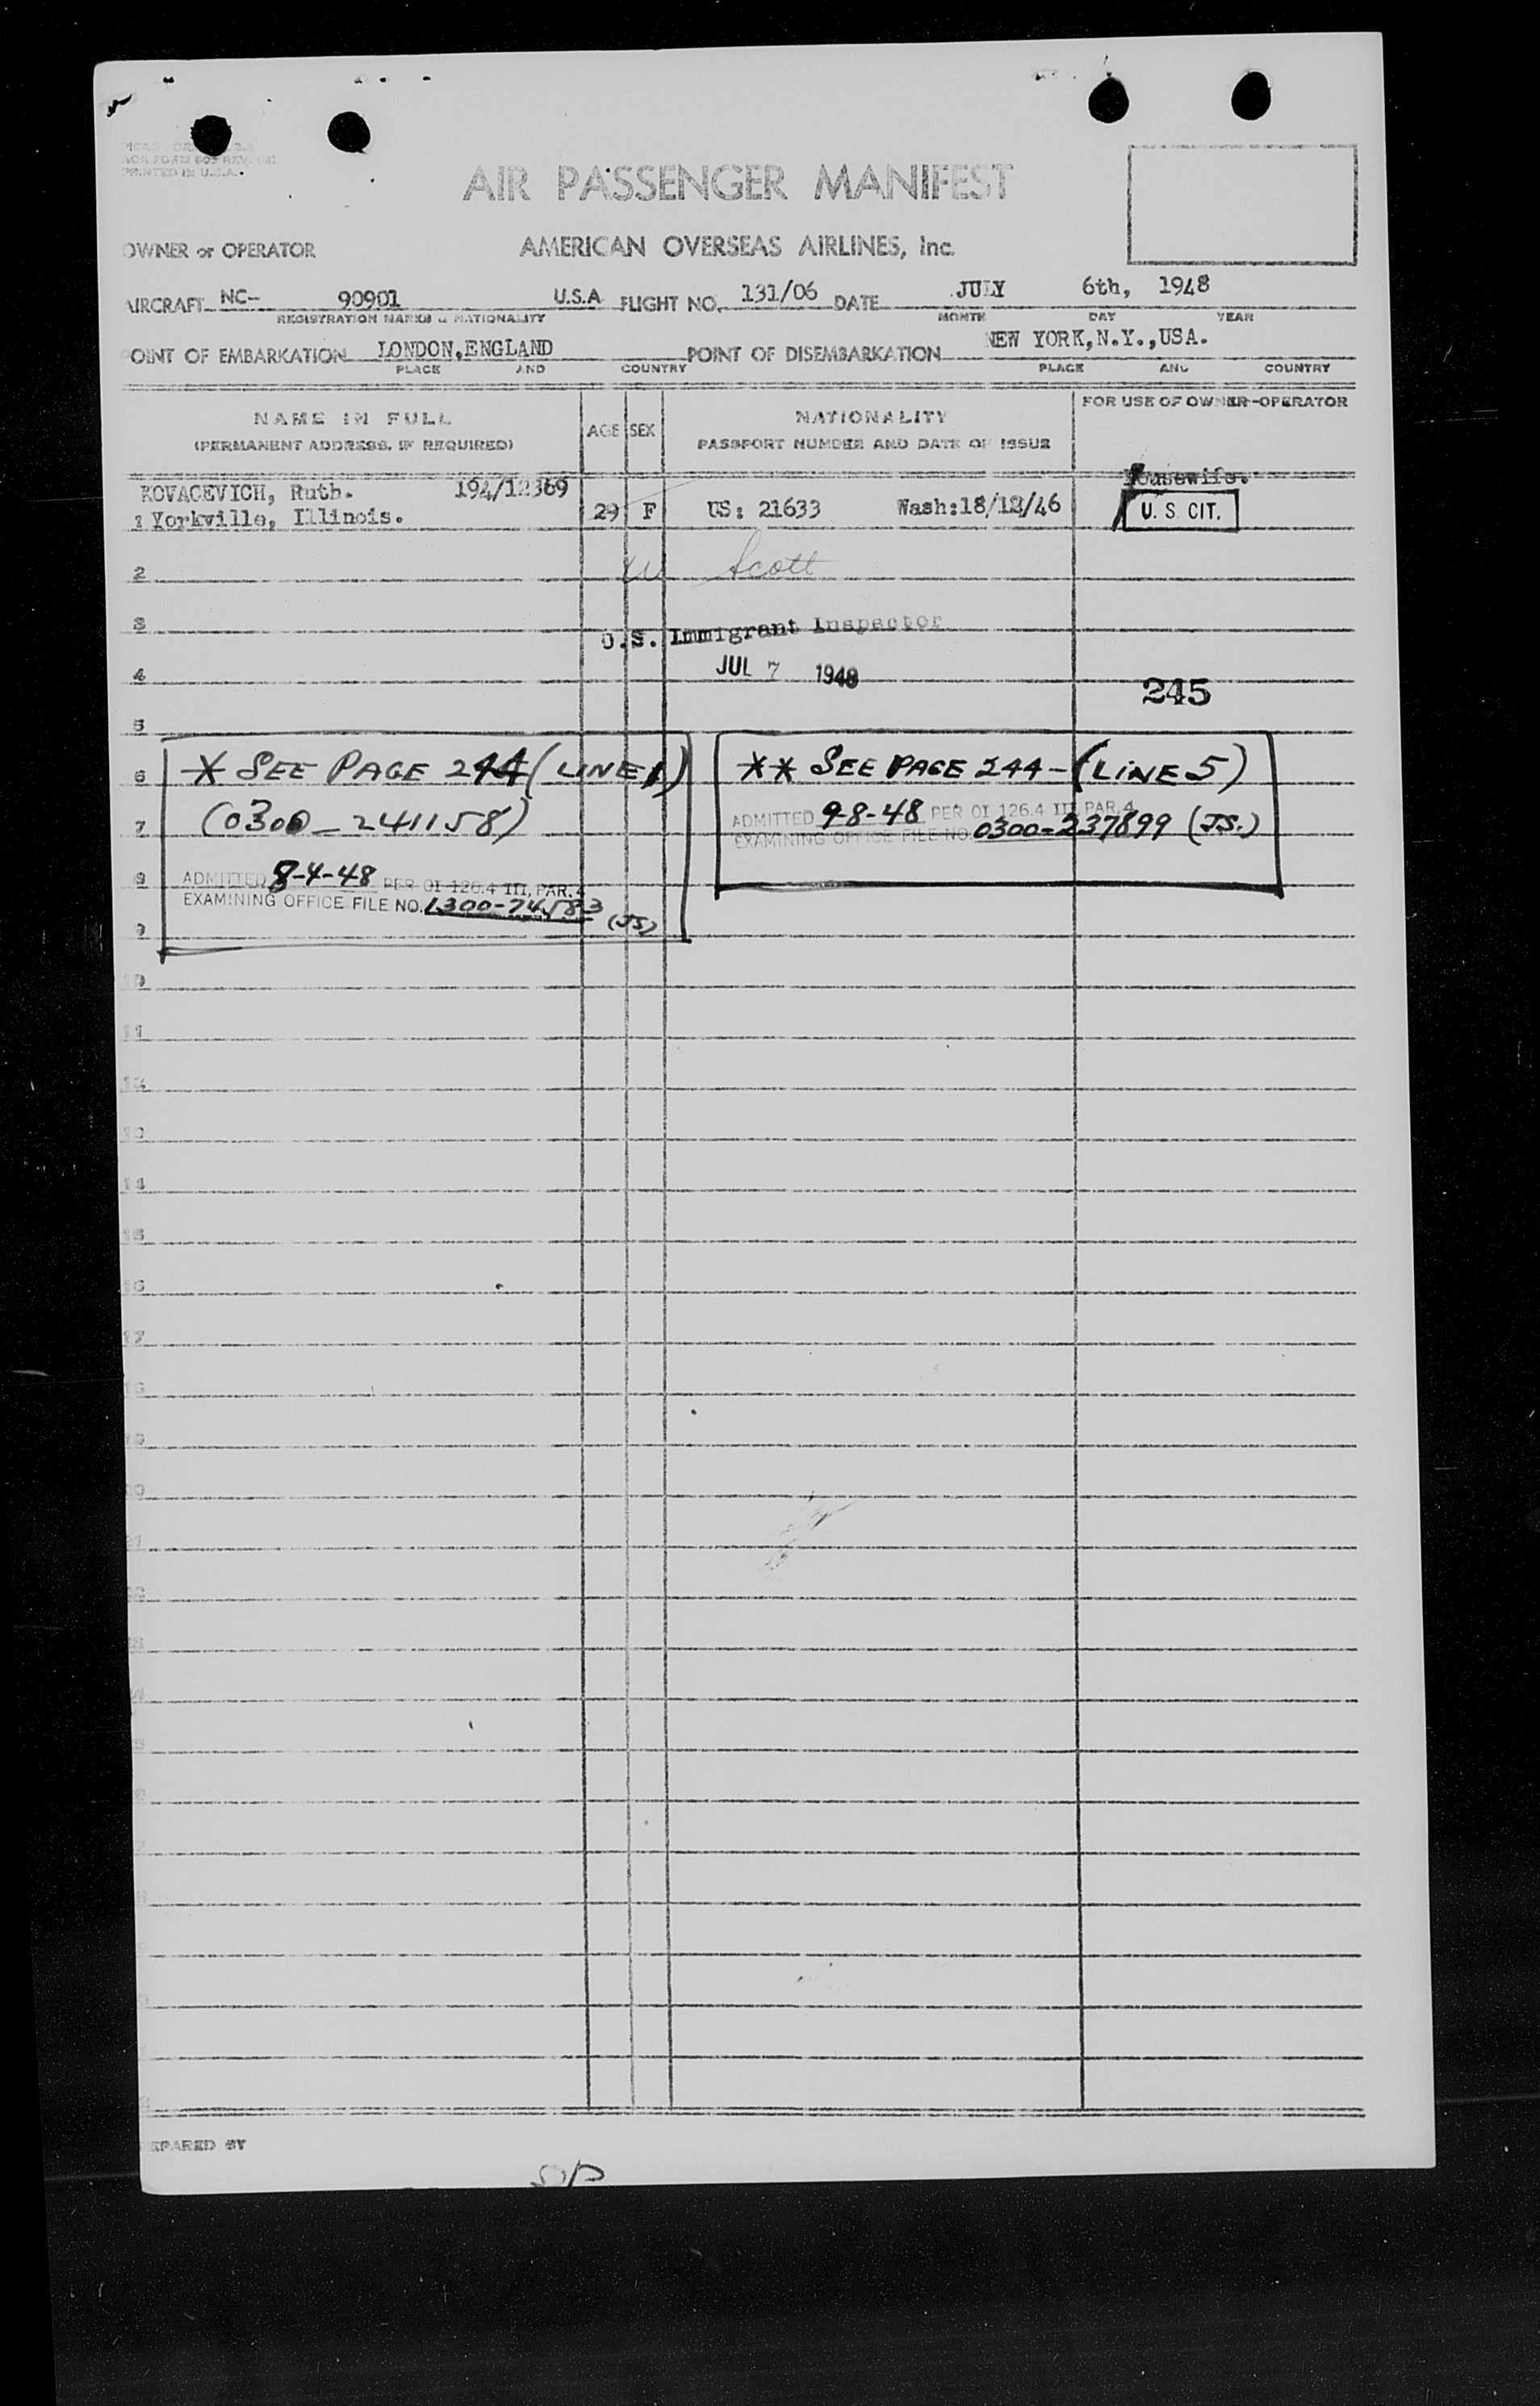 PRINTED IN U.S.A.
AIR PASSENGER MANIFEST
OWNER or OPERATOR AMERICAN OVERSEAS AIRLINES, Inc.
AIRCRAFT NC- 90901 U.S.A FLIGHT NO. 131/06 DATE JULY 6th, 1948
REGISTRATION MARKS & NATIONALITY MONTH DAY YEAR
OINT OF EMBARKATION LONDON,ENGLAND POINT OF DISEMBARKATION NEW YORK,N.Y.,USA.
PLACE AND COUNTRY PLACE AND COUNTRY
NAME IN FULL AGE SEX NATIONALITY FOR USE OF OWNER-OPERATOR
(PERMANENT ADDRESS, IF REQUIRED) PASSPORT NUMBER AND DATE OF ISSUE
KOVACEVICH, Ruth. 194/12369 Housewife.
1 Yorkville, Illinois. 29 F US: 21633 Wash:18/12/46 U. S. CIT.
2 W Scott
3 U.S. Immigrant Inspector
4 JUL 7 1948 245
5
6 * SEE PAGE 244 (LINE 1) ** SEE PAGE 244 - (LINE 5)
7 (0300-241158) ADMITTED 9-8-48 PER OI 126.4 III, PAR. 4
EXAMINING OFFICE FILE NO. 0300-237899 (J.S.)
8 ADMITTED 8-4-48 PER OI 126.4 III, PAR. 4
EXAMINING OFFICE FILE NO. 1300-74583 (JS)
9
10
11
12
13
14
15
16
17
18
19
EPARED BY